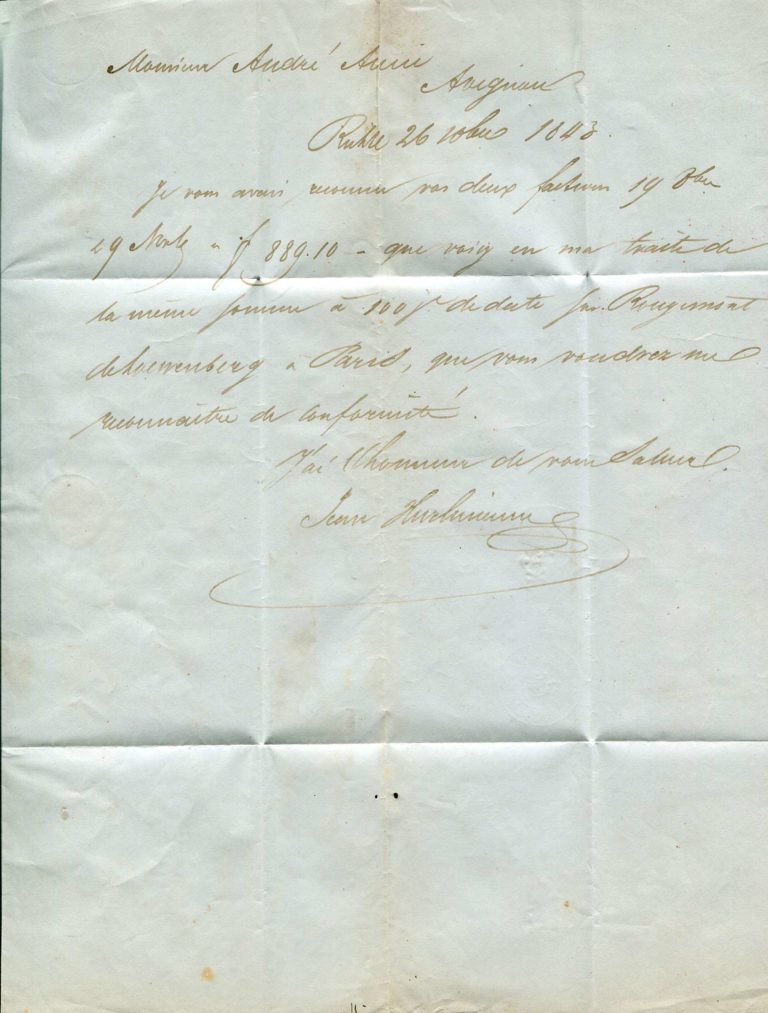 Monsieur André
Avignon
26 10bre 1843.
Je vous avais reconnu vos deux factures 19 8bre
à f 889.10 - que voicy en ma traite de
la même somme à 100 jrs de date sur Rougemont
de Loewenberg à Paris, que vous voudrez me
reconnaître de conformité.
J'ai l'honneur de vous Saluer.
Jean